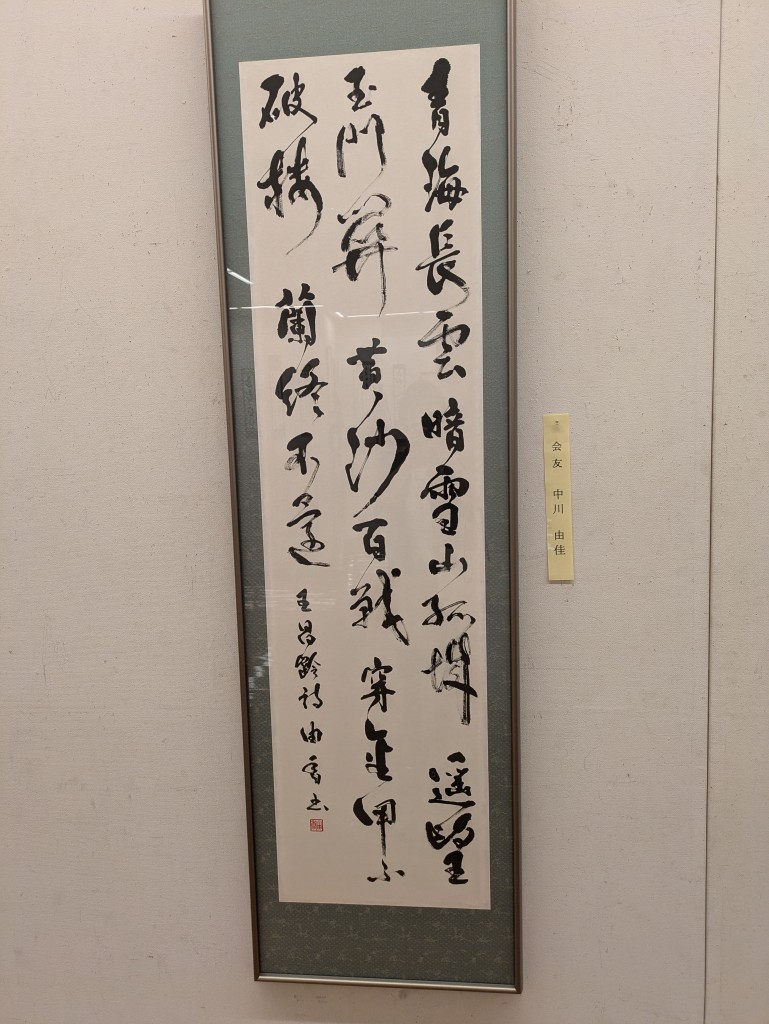 青海長雲暗雪山孤城遥望
玉門関黄沙百戦穿金甲不
破楼蘭終不還 王昌齢詩 由 書
会友 中川 由佳